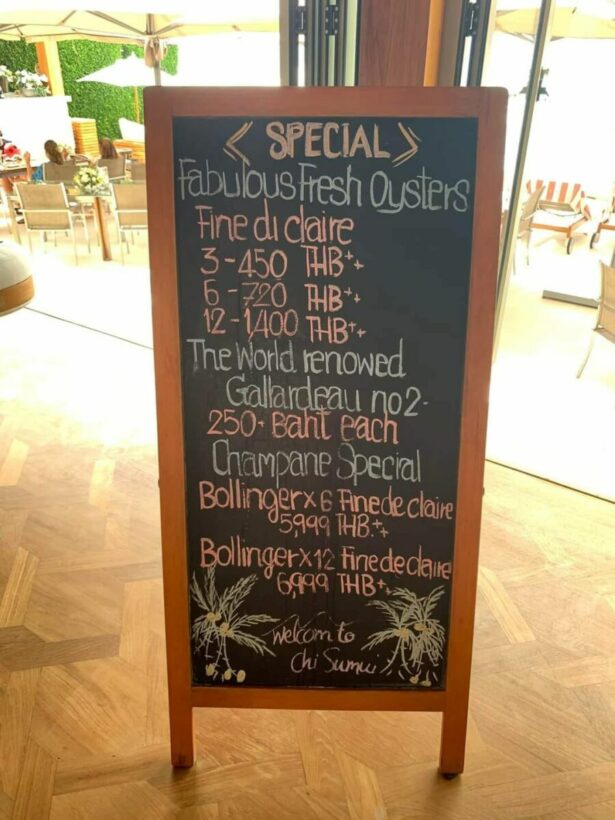 < SPECIAL >
Fabulous Fresh Oysters
Fine di claire
3-450 THB++
6-720 THB++
12-1,400 THB++
The World renowed
Gallardeau no2-
250+ Baht each
Champane Special
Bollinger x 6 Fine de claire
5,999 THB++
Bollinger x 12 Fine de claire
6,999 THB++
Welcom to
Chi Sumui